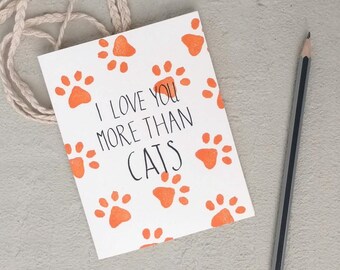 I LOVE YOU
MORE THAN
CATS